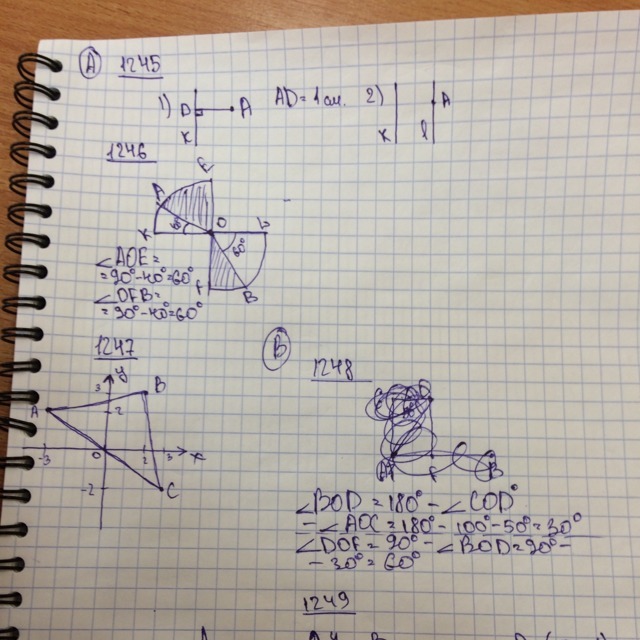 A 1245
1) D A AD = 1 см. 2) A
x x l
1246
A O
x
B
∠AOE =
= 90° - 40° = 60°
∠OFB =
= 90° - 40° = 60°
1247
B
3 y B
A 2
-3 0 2 3 x
-2 C
1248
∠BOD = 180° - ∠COD
- ∠AOC = 180° - 100° - 50° = 30°
∠DOF = 90° - ∠BOD = 90° -
- 30° = 60°
1249